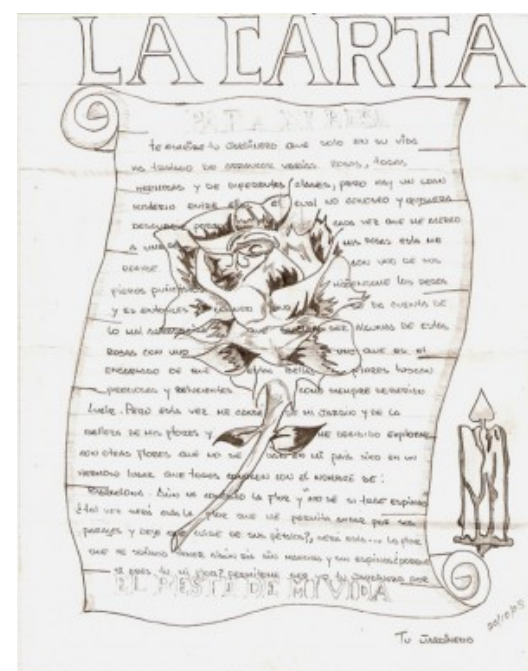 LA CARTA
PARA MI ROSA
Te escribe tu jardinero que solo en su vida
ha tratado de arrancar varias rosas, todas
hermosas y de diferentes clases, pero hay un gran
misterio entre ellas el cual no conozco y quisiera
cada vez que me acerco
a una mis rosas esta me
con uno de sus
fieros los dedos
y es entonces cuando de cuenta de
lo mal que ser algunas de estas
rosas con uno que es el
encargado de que estas bellas flores luzcan
preciosas y relucientes como siempre
luele. Pero esta vez me canse de mi jardin y de la
belleza de mis flores y he decidido explorar
con otras flores que no se en mi pais sino en un
hermoso lugar que todos conocen con el nombre de:
Barcelona. Aún no conozco la flor y no se si trae espinas
¿tal vez será esta la flor que me permita andar por sus
parajes y deje que cuide de sus pétalos?, será esta... la flor
que he soñado tener algún día sin manchas y sin espinas
si eres tu mi flor? permiteme ser yo tu jardinero por
EL RESTO DE MI VIDA
Tu Jardinero
20/10/05